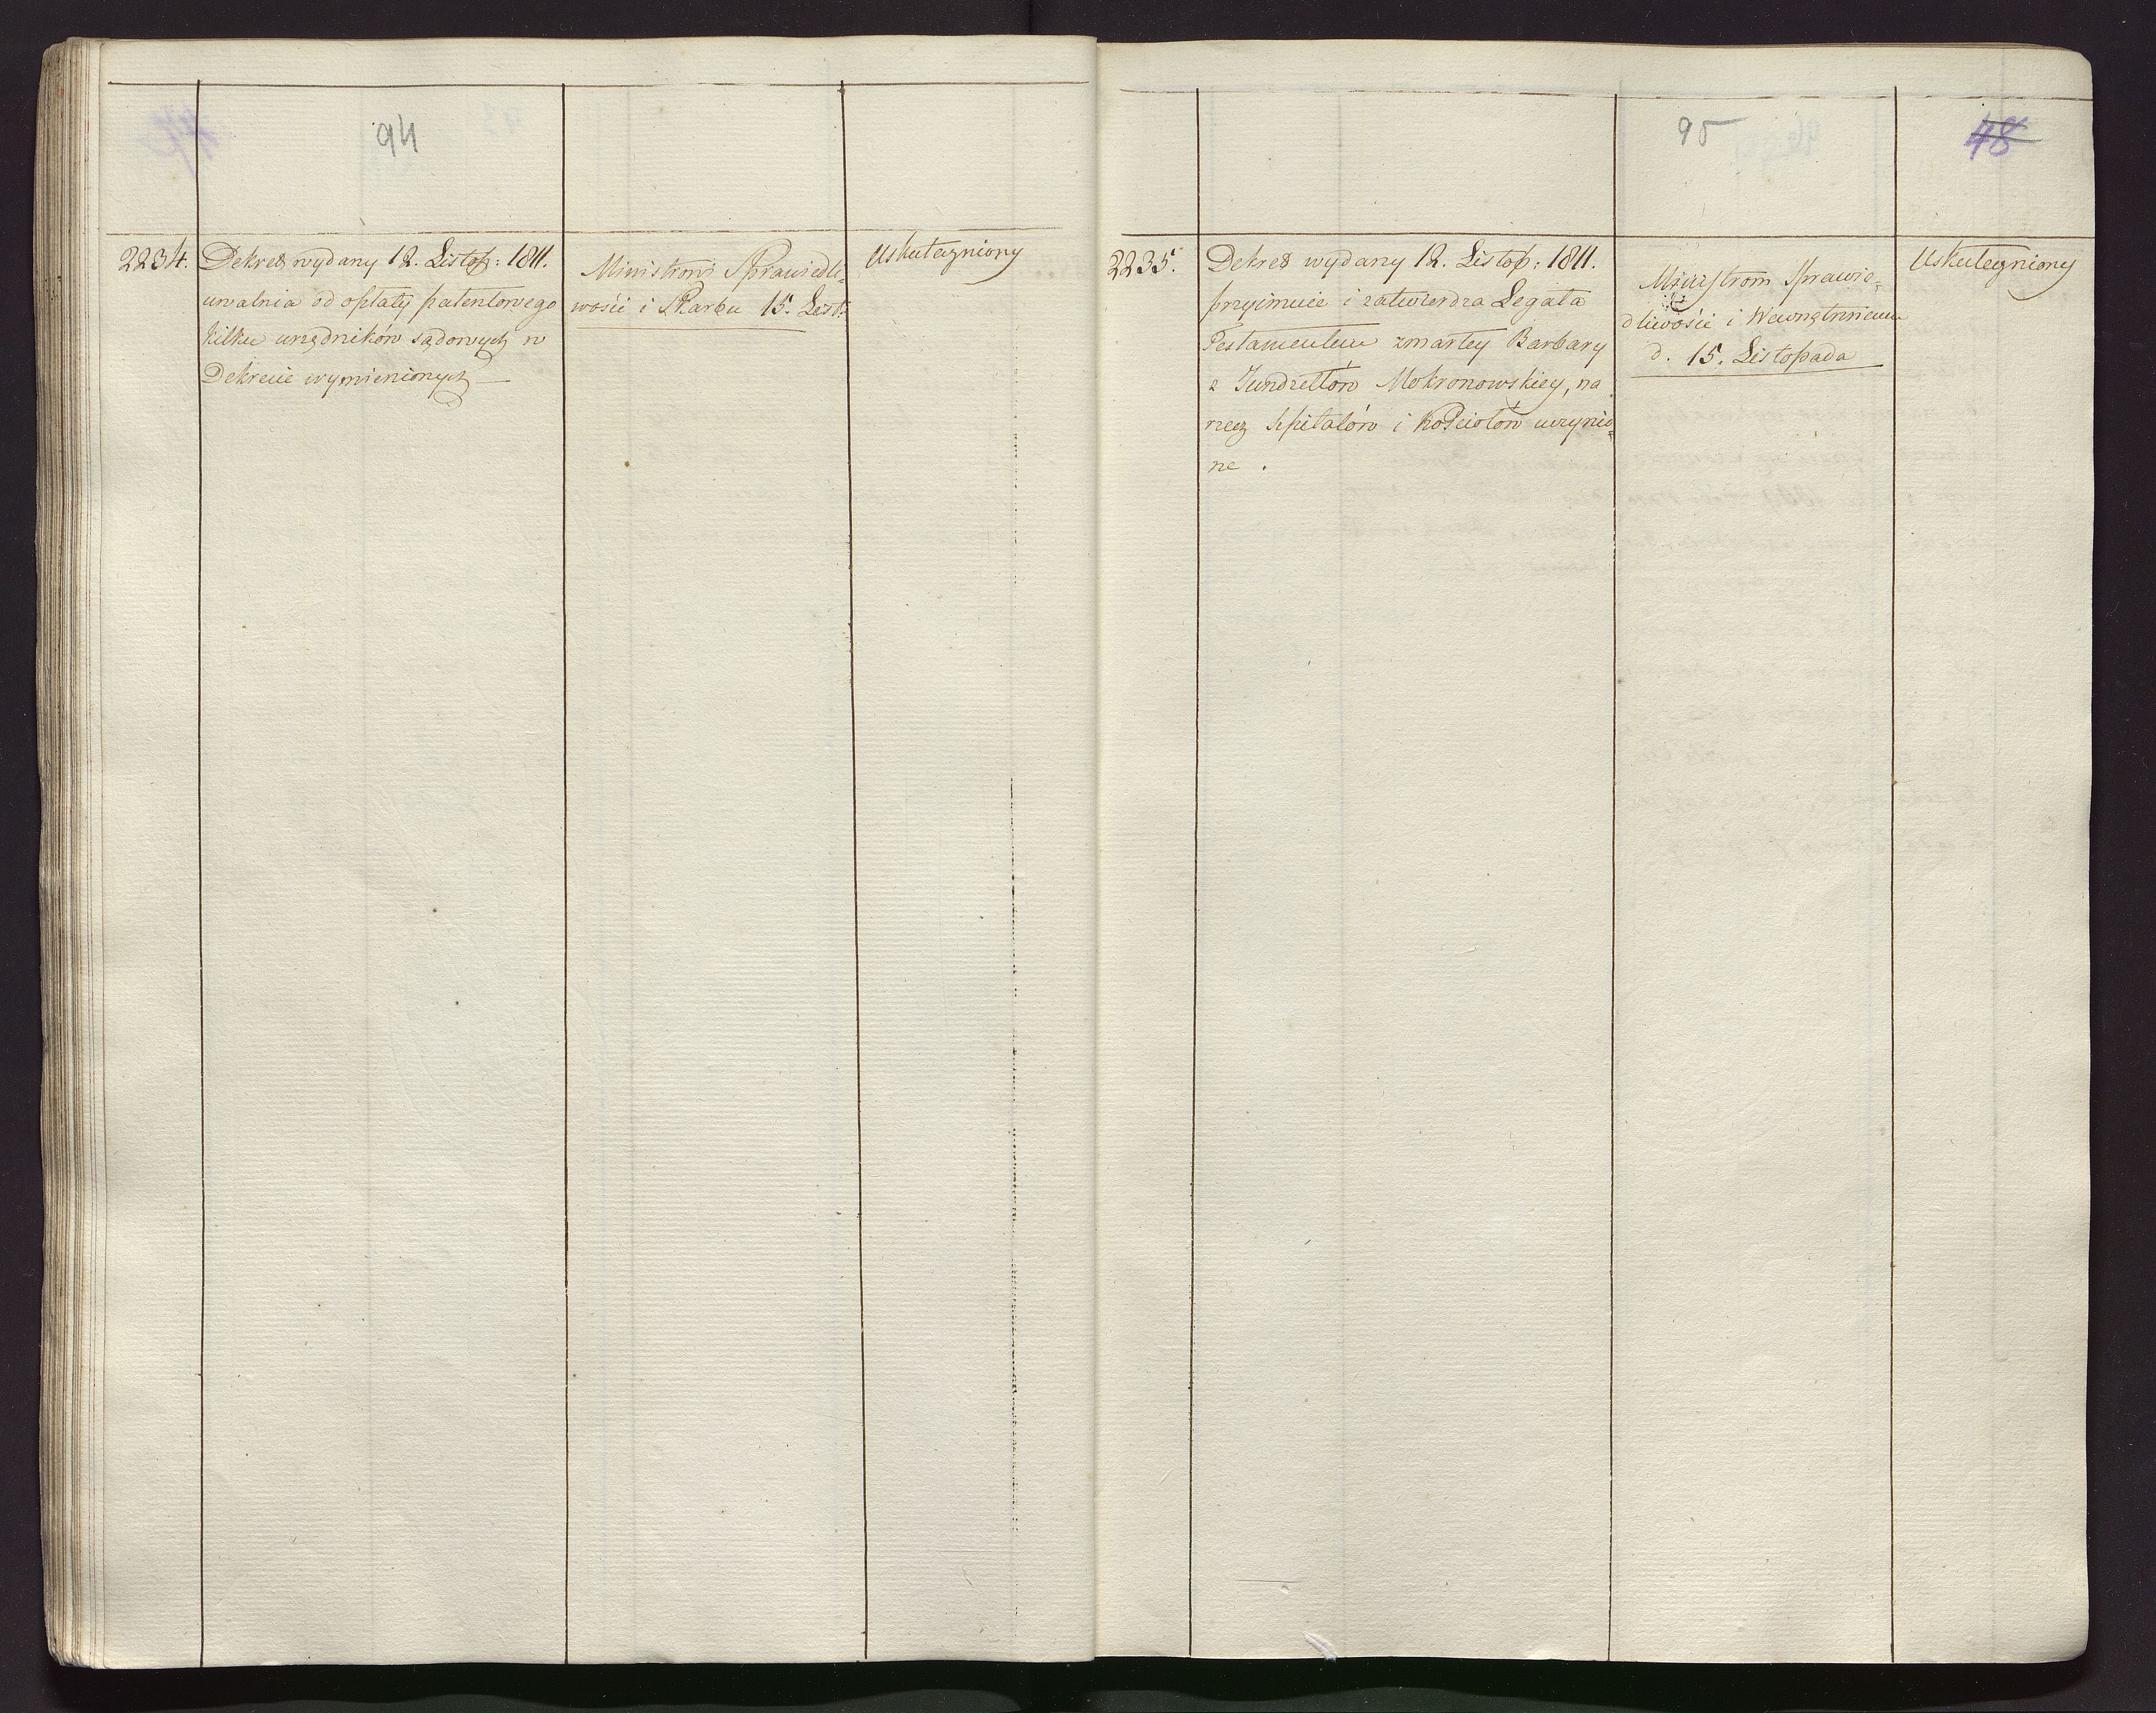 94
2234.
Dekret wydany 12. Listop: 1811.
uwalnia od opłaty patentowego
kilku urzędników sądowych w
Dekrecie wymienionych —
Ministrowi Sprawiedli=
wości i Skarbu 15. List:
Uskuteczniony
95
48
2235.
Dekret wydany 12. Listop: 1811.
przyimuie i zatwierdza Legata
Testamentem zmarłey Barbary
z Jundziłłów Mokronowskiey, na
rzecz Szpitalów i Kościołów uczynio=
ne .
Ministrom Sprawie=
dliwości i Wewnętrznemu
d. 15. Listopada
Uskuteczniony